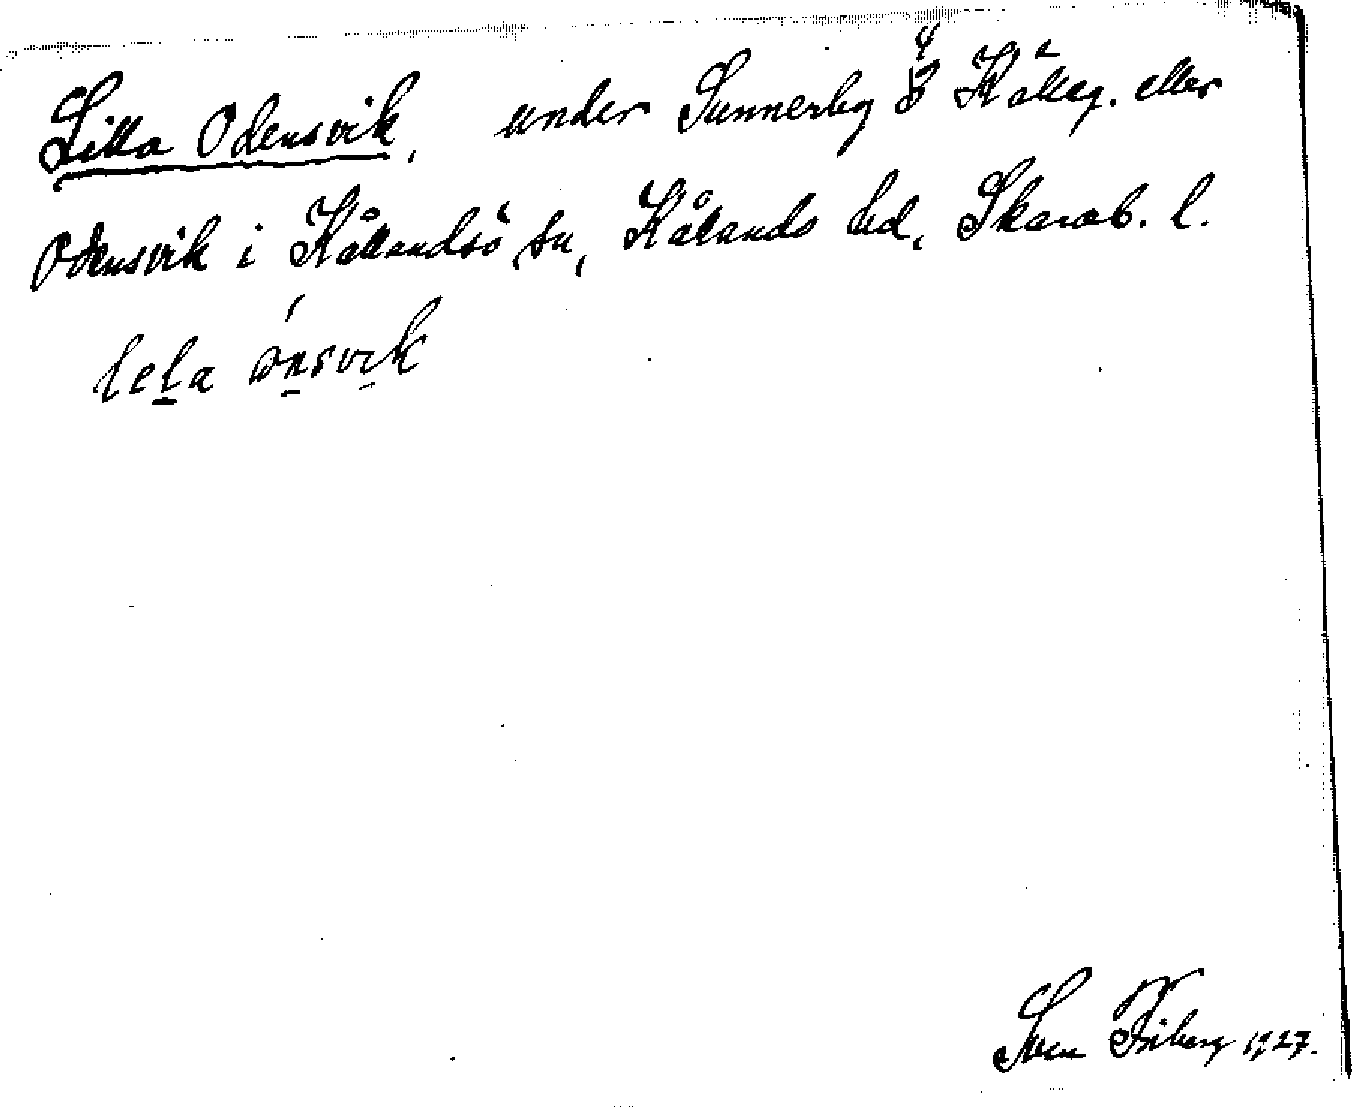 Lilla Odensvik, under Sunnerby 4 3 Källeg. eller
Odensvik i Kållandsö sn, Kålands hd, Skarab. l.
lela ònsvik
Sven Friberg 1927.